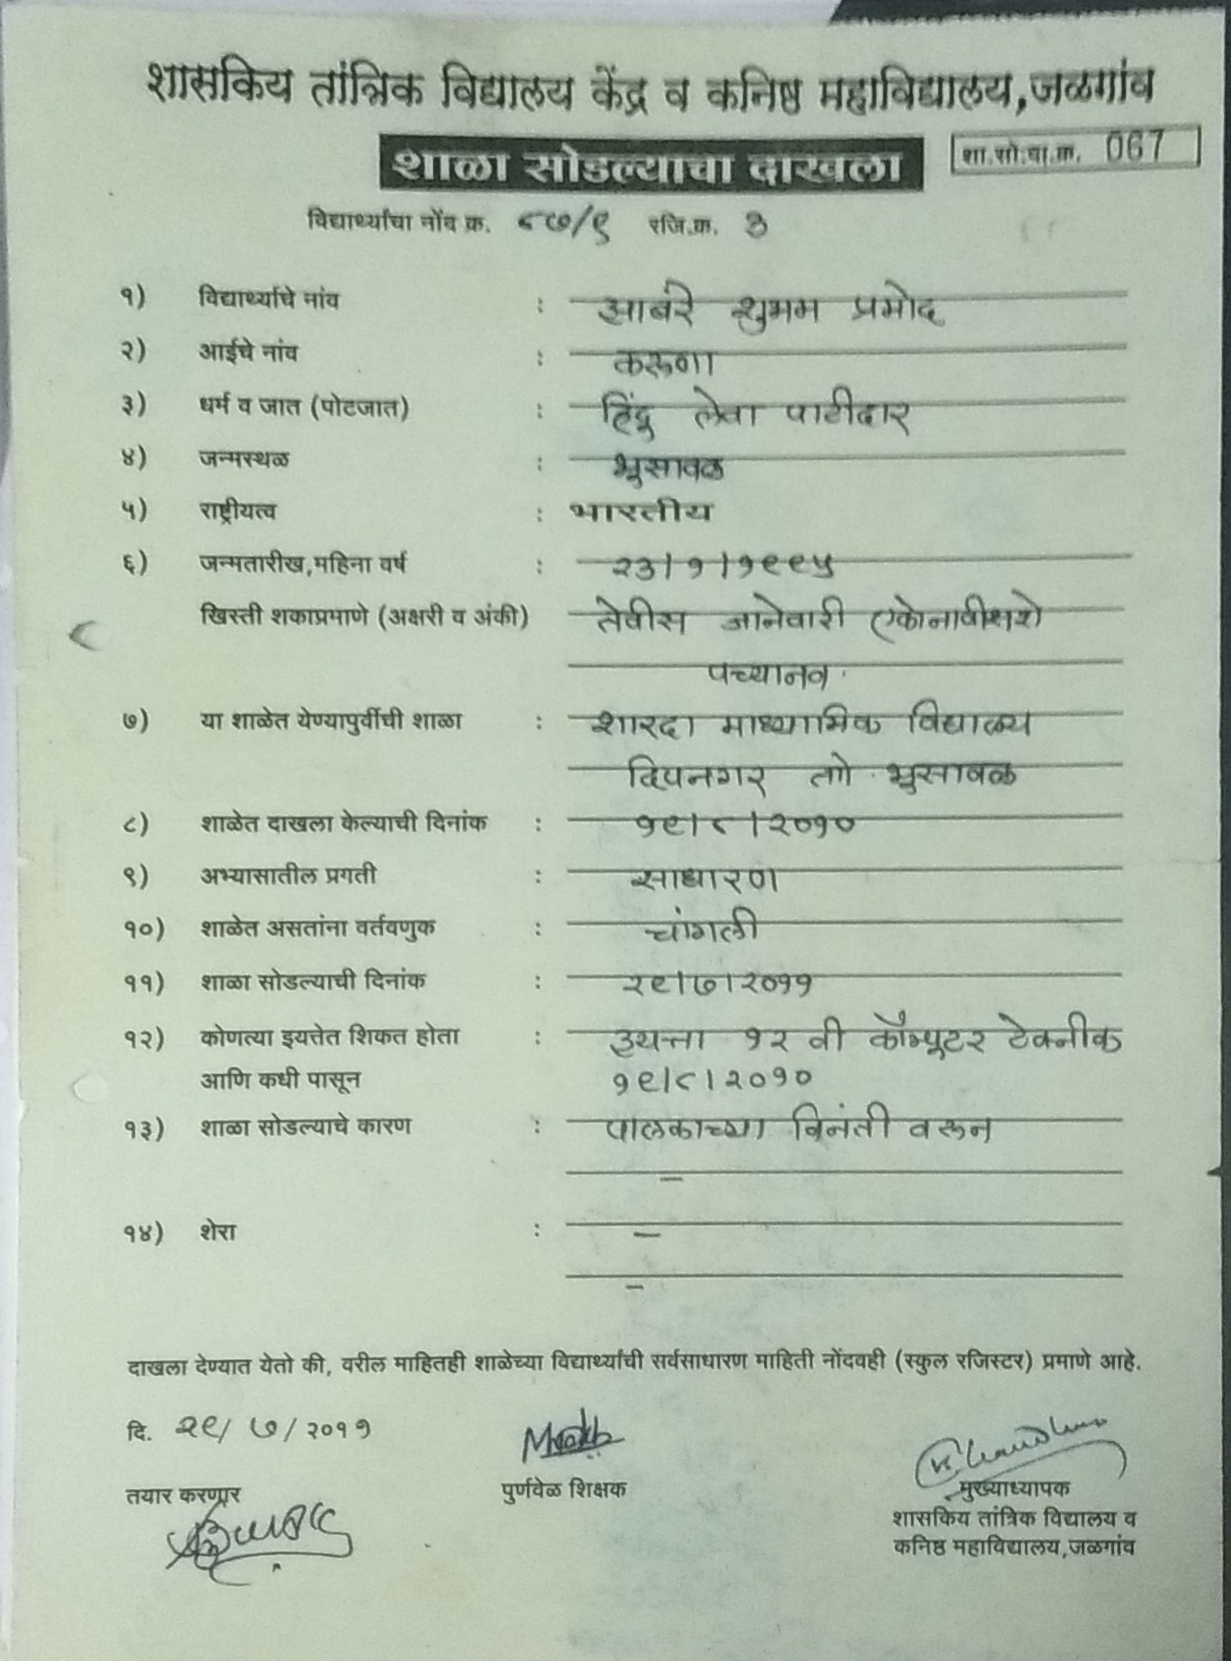 शासकिय तांत्रिक विद्यालय केंद्र व कनिष्ठ महाविद्यालय,जळगांव
शाळा सोडल्याचा दाखला
शा.सो.दा.क्र. 067
विद्यार्थ्याचा नोंव क्र. ८७/९ रजि.क्र. ३
१) विद्यार्थ्याचे नांव : आबंरे शुभम प्रमोद
२) आईचे नांव : करूणा
३) धर्म व जात (पोटजात) : हिंदू लेवा पाटीदार
४) जन्मस्थळ : भुसावळ
५) राष्ट्रीयत्व : भारतीय
६) जन्मतारीख,महिना वर्ष : २३/१/१९९५
खिस्ती शकाप्रमाणे (अक्षरी व अंकी) तेवीस जानेवारी एकोनावीसशे
पच्यानव.
७) या शाळेत येण्यापुर्वीची शाळा : शारदा माध्यामिक विद्यालय
दिपनगर ता. भुसावळ
८) शाळेत दाखला केल्याची दिनांक : १९/८/२०१०
९) अभ्यासातील प्रगती : साधारण
१०) शाळेत असतांना वर्तवणुक : चांगली
११) शाळा सोडल्याची दिनांक : २९/७/२०११
१२) कोणत्या इयत्तेत शिकत होता : इयत्ता १२ वी कॉम्पूटर टेक्नीक
आणि कधी पासून १९/८/२०१०
१३) शाळा सोडल्याचे कारण : पालकाच्या विनंती वरून
—
१४) शेरा : —
–
दाखला देण्यात येतो की, वरील माहितही शाळेच्या विद्यार्थ्याची सर्वसाधारण माहिती नोंदवही (स्कुल रजिस्टर) प्रमाणे आहे.
दि. २९/७/२०११
तयार करणार पुर्णवेळ शिक्षक मुख्याध्यापक
शासकिय तांत्रिक विद्यालय व
कनिष्ठ महाविद्यालय,जळगांव